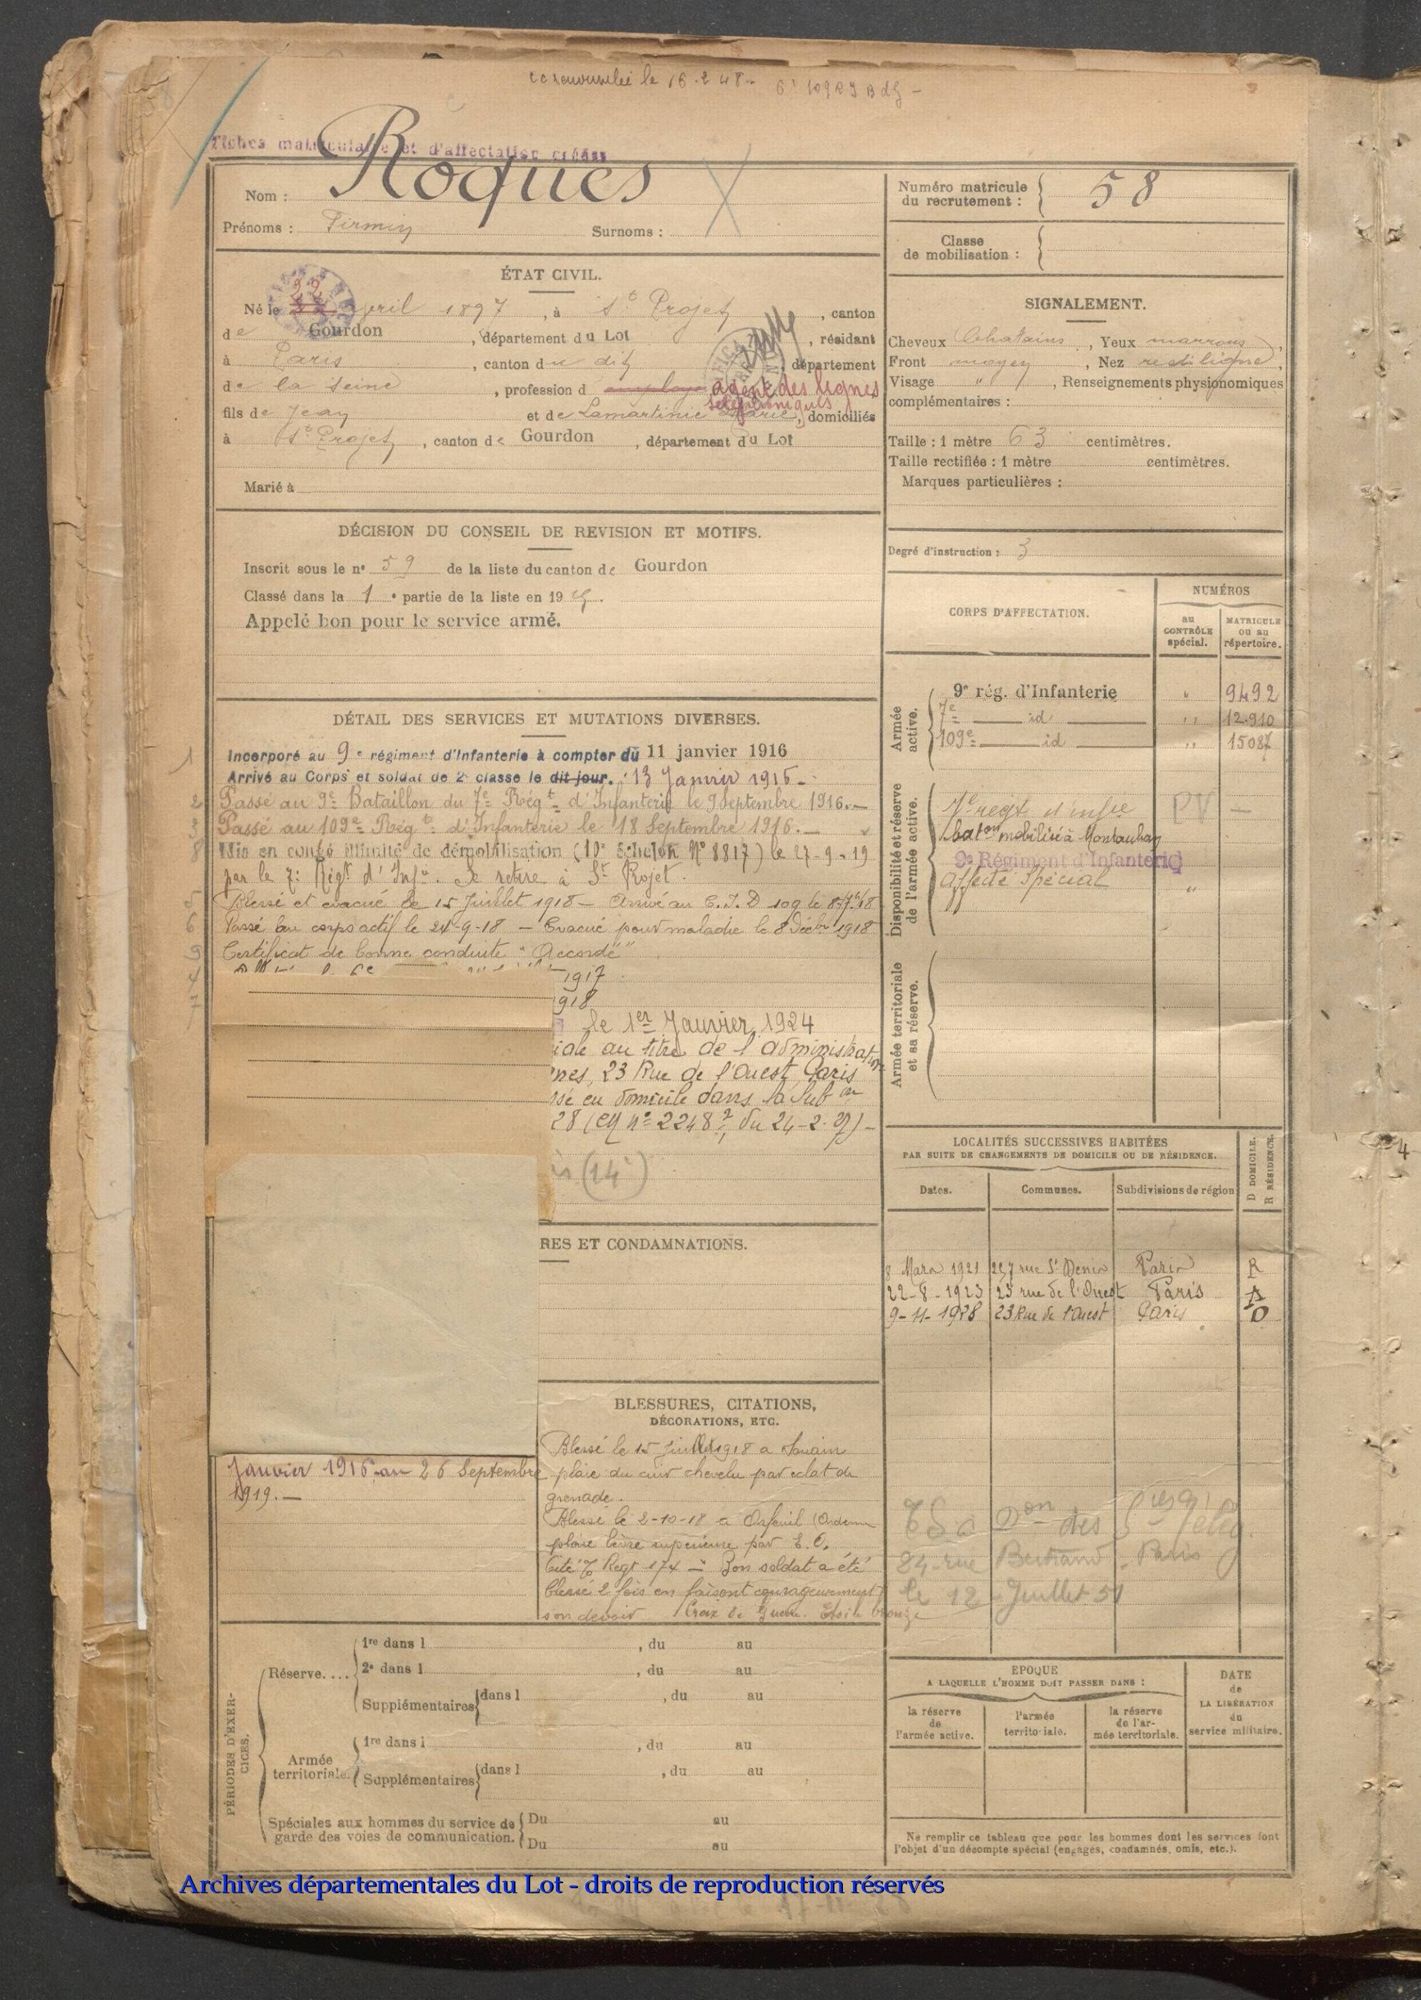 le 16.2.48.
Fiches matriculaire et d'affectation créées
Nom : Roques
Prénoms : Firmin Surnoms :
ÉTAT CIVIL.
Né le 22 avril 1897, à St Projet, canton
de Gourdon, département du Lot, résidant
à Paris, canton du dit, département
de la Seine, profession d agent des lignes
téléphoniques
fils de Jean et de Lamartinie Marie, domiciliés
à St Projet, canton de Gourdon, département du Lot
Marié à
DÉCISION DU CONSEIL DE REVISION ET MOTIFS.
Inscrit sous le n° 59 de la liste du canton de Gourdon
Classé dans la 1e partie de la liste en 19
Appelé bon pour le service armé.
DÉTAIL DES SERVICES ET MUTATIONS DIVERSES.
Incorporé au 9e régiment d'Infanterie à compter du 11 janvier 1916
Arrivé au Corps et soldat de 2e classe le dit jour. 13 Janvier 1916.
Passé au 9e Bataillon du 7e Régt d'Infanterie le 9 Septembre 1916.
Passé au 109e Régt d'Infanterie le 18 Septembre 1916.
Mis en congé illimité de démobilisation (10e échelon N° 8817) le 27-9-19
par le 7e Régt d'Infie. Se retire à St Projet.
Blessé et évacué le 15 Juillet 1918 - Arrivé au C.I.D 109 le
Passé au corps actif le 24-9-18 - Evacué pour maladie le 8 Décbre 1918
Certificat de bonne conduite "Accordé"
1917
918
le 1er Janvier 1924
iale au titre de l'administration
nes, 23 Rue de l'Ouest Paris
sé en domicile dans la Subon
28 (en n° 2248 du 24-2-
(14e)
RES ET CONDAMNATIONS.
Janvier 1916 au 26 Septembre
1919.
BLESSURES, CITATIONS,
DÉCORATIONS, ETC.
Blessé le 15 Juillet 1918 a Souain
plaie du cuir chevelu par eclat de
grenade.
Blessé le 2-10-18 a Orfeuil (Ardenn
plaie lèvre supérieure par E.O.
Cité Regt 174 - Bon soldat a été
blessé 2 fois en faisant courageusement
son devoir. Croix de Guerre. Etoile bronze
PÉRIODES D'EXERCICES.
Réserve.... 1re dans l , du au
2e dans l , du au
Supplémentaires dans l , du au
Armée territoriale. 1re dans l , du au
Supplémentaires dans l , du au
Spéciales aux hommes du service de garde des voies de communication. Du au
Du au
Numéro matricule du recrutement : 58
Classe de mobilisation :
SIGNALEMENT.
Cheveux Chatains, Yeux marrons,
Front moyen, Nez rectiligne,
Visage ", Renseignements physionomiques
complémentaires :
Taille : 1 mètre 63 centimètres.
Taille rectifiée : 1 mètre centimètres.
Marques particulières :
Degré d'instruction : 3
CORPS D'AFFECTATION.
NUMÉROS
au CONTRÔLE spécial.
MATRICULE ou au répertoire.
Armée active.
9e rég. d'Infanterie " 9492
7e id " 12.910
109e id " 15087
Disponibilité et réserve de l'armée active.
7e regt d'infie PV
baton mobilisé à Montauban
9e Régiment d'Infanterie
Affecté Spécial "
Armée territoriale et sa réserve.
LOCALITÉS SUCCESSIVES HABITÉES
PAR SUITE DE CHANGEMENTS DE DOMICILE OU DE RÉSIDENCE.
Dates. Communes. Subdivisions de région D DOMICILE. R RÉSIDENCE.
8 Mars 1921 257 rue St Denis Paris R
22-8-1923 23 rue de l'Ouest Paris
9-11-1928 23 Rue de l'Ouest Paris D
Don des
24 rue Bertrand. Paris
le 12 - Juillet 51
EPOQUE
A LAQUELLE L'HOMME DOIT PASSER DANS :
la réserve de l'armée active.
l'armée territoriale.
la réserve de l'armée territoriale.
DATE de LA LIBÉRATION du service militaire.
Ne remplir ce tableau que pour les hommes dont les services font
l'objet d'un décompte spécial (engagés, condamnés, omis, etc.).
Archives départementales du Lot - droits de reproduction réservés